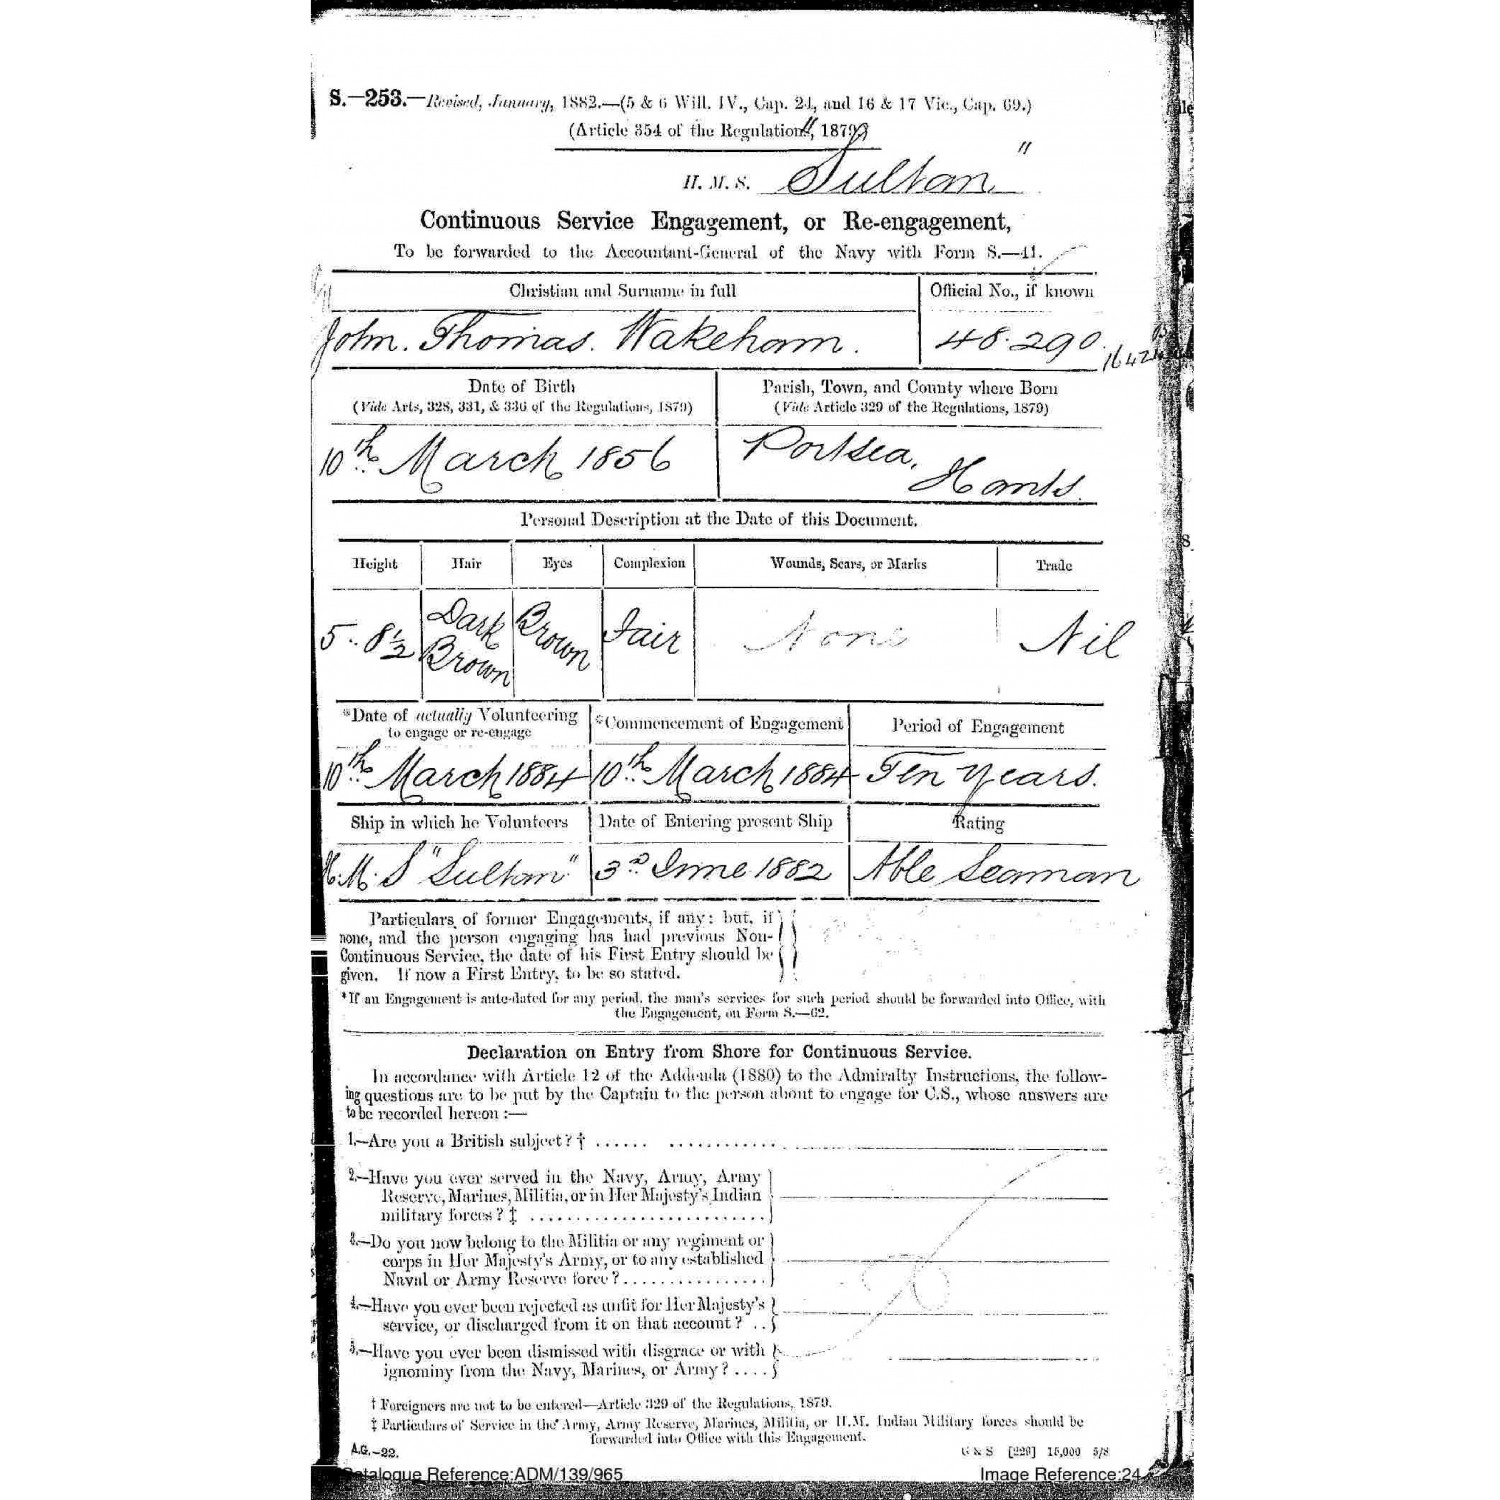 S.—253.—Revised, January, 1882.—(5 & 6 Will. IV., Cap. 24, and 16 & 17 Vic., Cap. 69.)
(Article 354 of the Regulations, 1879)
H. M. S. "Sultan"
Continuous Service Engagement, or Re-engagement,
To be forwarded to the Accountant-General of the Navy with Form S.—41.
Christian and Surname in full
Official No., if known
John. Thomas. Wakeham.
48.290
Date of Birth
(Vide Arts, 328, 331, & 336 of the Regulations, 1879)
Parish, Town, and County where Born
(Vide Article 329 of the Regulations, 1879)
10th March 1856
Portsea,
Hants.
Personal Description at the Date of this Document.
Height Hair Eyes Complexion Wounds, Scars, or Marks Trade
5.. 8½ Dark Brown Brown Fair None Nil
*Date of actually Volunteering
to engage or re-engage
*Commencement of Engagement
Period of Engagement
10th March 1884 10th March 1884 Ten years.
Ship in which he Volunteers Date of Entering present Ship Rating
H.M.S "Sultan" 3rd June 1882 Able Seaman
Particulars of former Engagements, if any: but, if
none, and the person engaging has had previous Non-
Continuous Service, the date of his First Entry should be
given. If now a First Entry, to be so stated.
*If an Engagement is ante-dated for any period, the man's services for such period should be forwarded into Office, with
the Engagement, on Form S.—62.
Declaration on Entry from Shore for Continuous Service.
In accordance with Article 12 of the Addenda (1880) to the Admiralty Instructions, the follow-
ing questions are to be put by the Captain to the person about to engage for C.S., whose answers are
to be recorded hereon :—
1.—Are you a British subject? † ...... ............
2.—Have you ever served in the Navy, Army, Army
Reserve, Marines, Militia, or in Her Majesty's Indian
military forces? ‡ ..........................
3.—Do you now belong to the Militia or any regiment or
corps in Her Majesty's Army, or to any established
Naval or Army Reserve force? ................
4.—Have you ever been rejected as unfit for Her Majesty's
service, or discharged from it on that account? ..
5.—Have you ever been dismissed with disgrace or with
ignominy from the Navy, Marines, or Army? ....
† Foreigners are not to be entered—Article 329 of the Regulations, 1879.
‡ Particulars of Service in the Army, Army Reserve, Marines, Militia, or H.M. Indian Military forces should be
forwarded into Office with this Engagement.
A.G.—22.
G & S [229] 15,000 5/8
Catalogue Reference:ADM/139/965
Image Reference:24